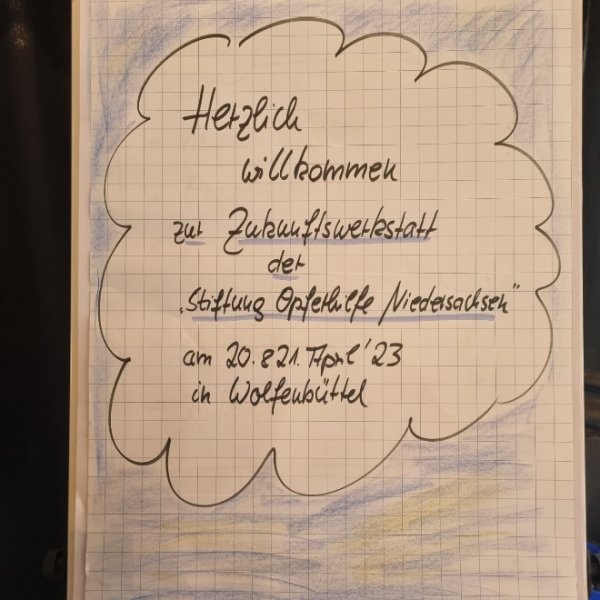 Herzlich
willkommen
zur Zukunftswerkstatt
der
„Stiftung Opferhilfe Niedersachsen"
am 20. & 21. April '23
in Wolfenbüttel